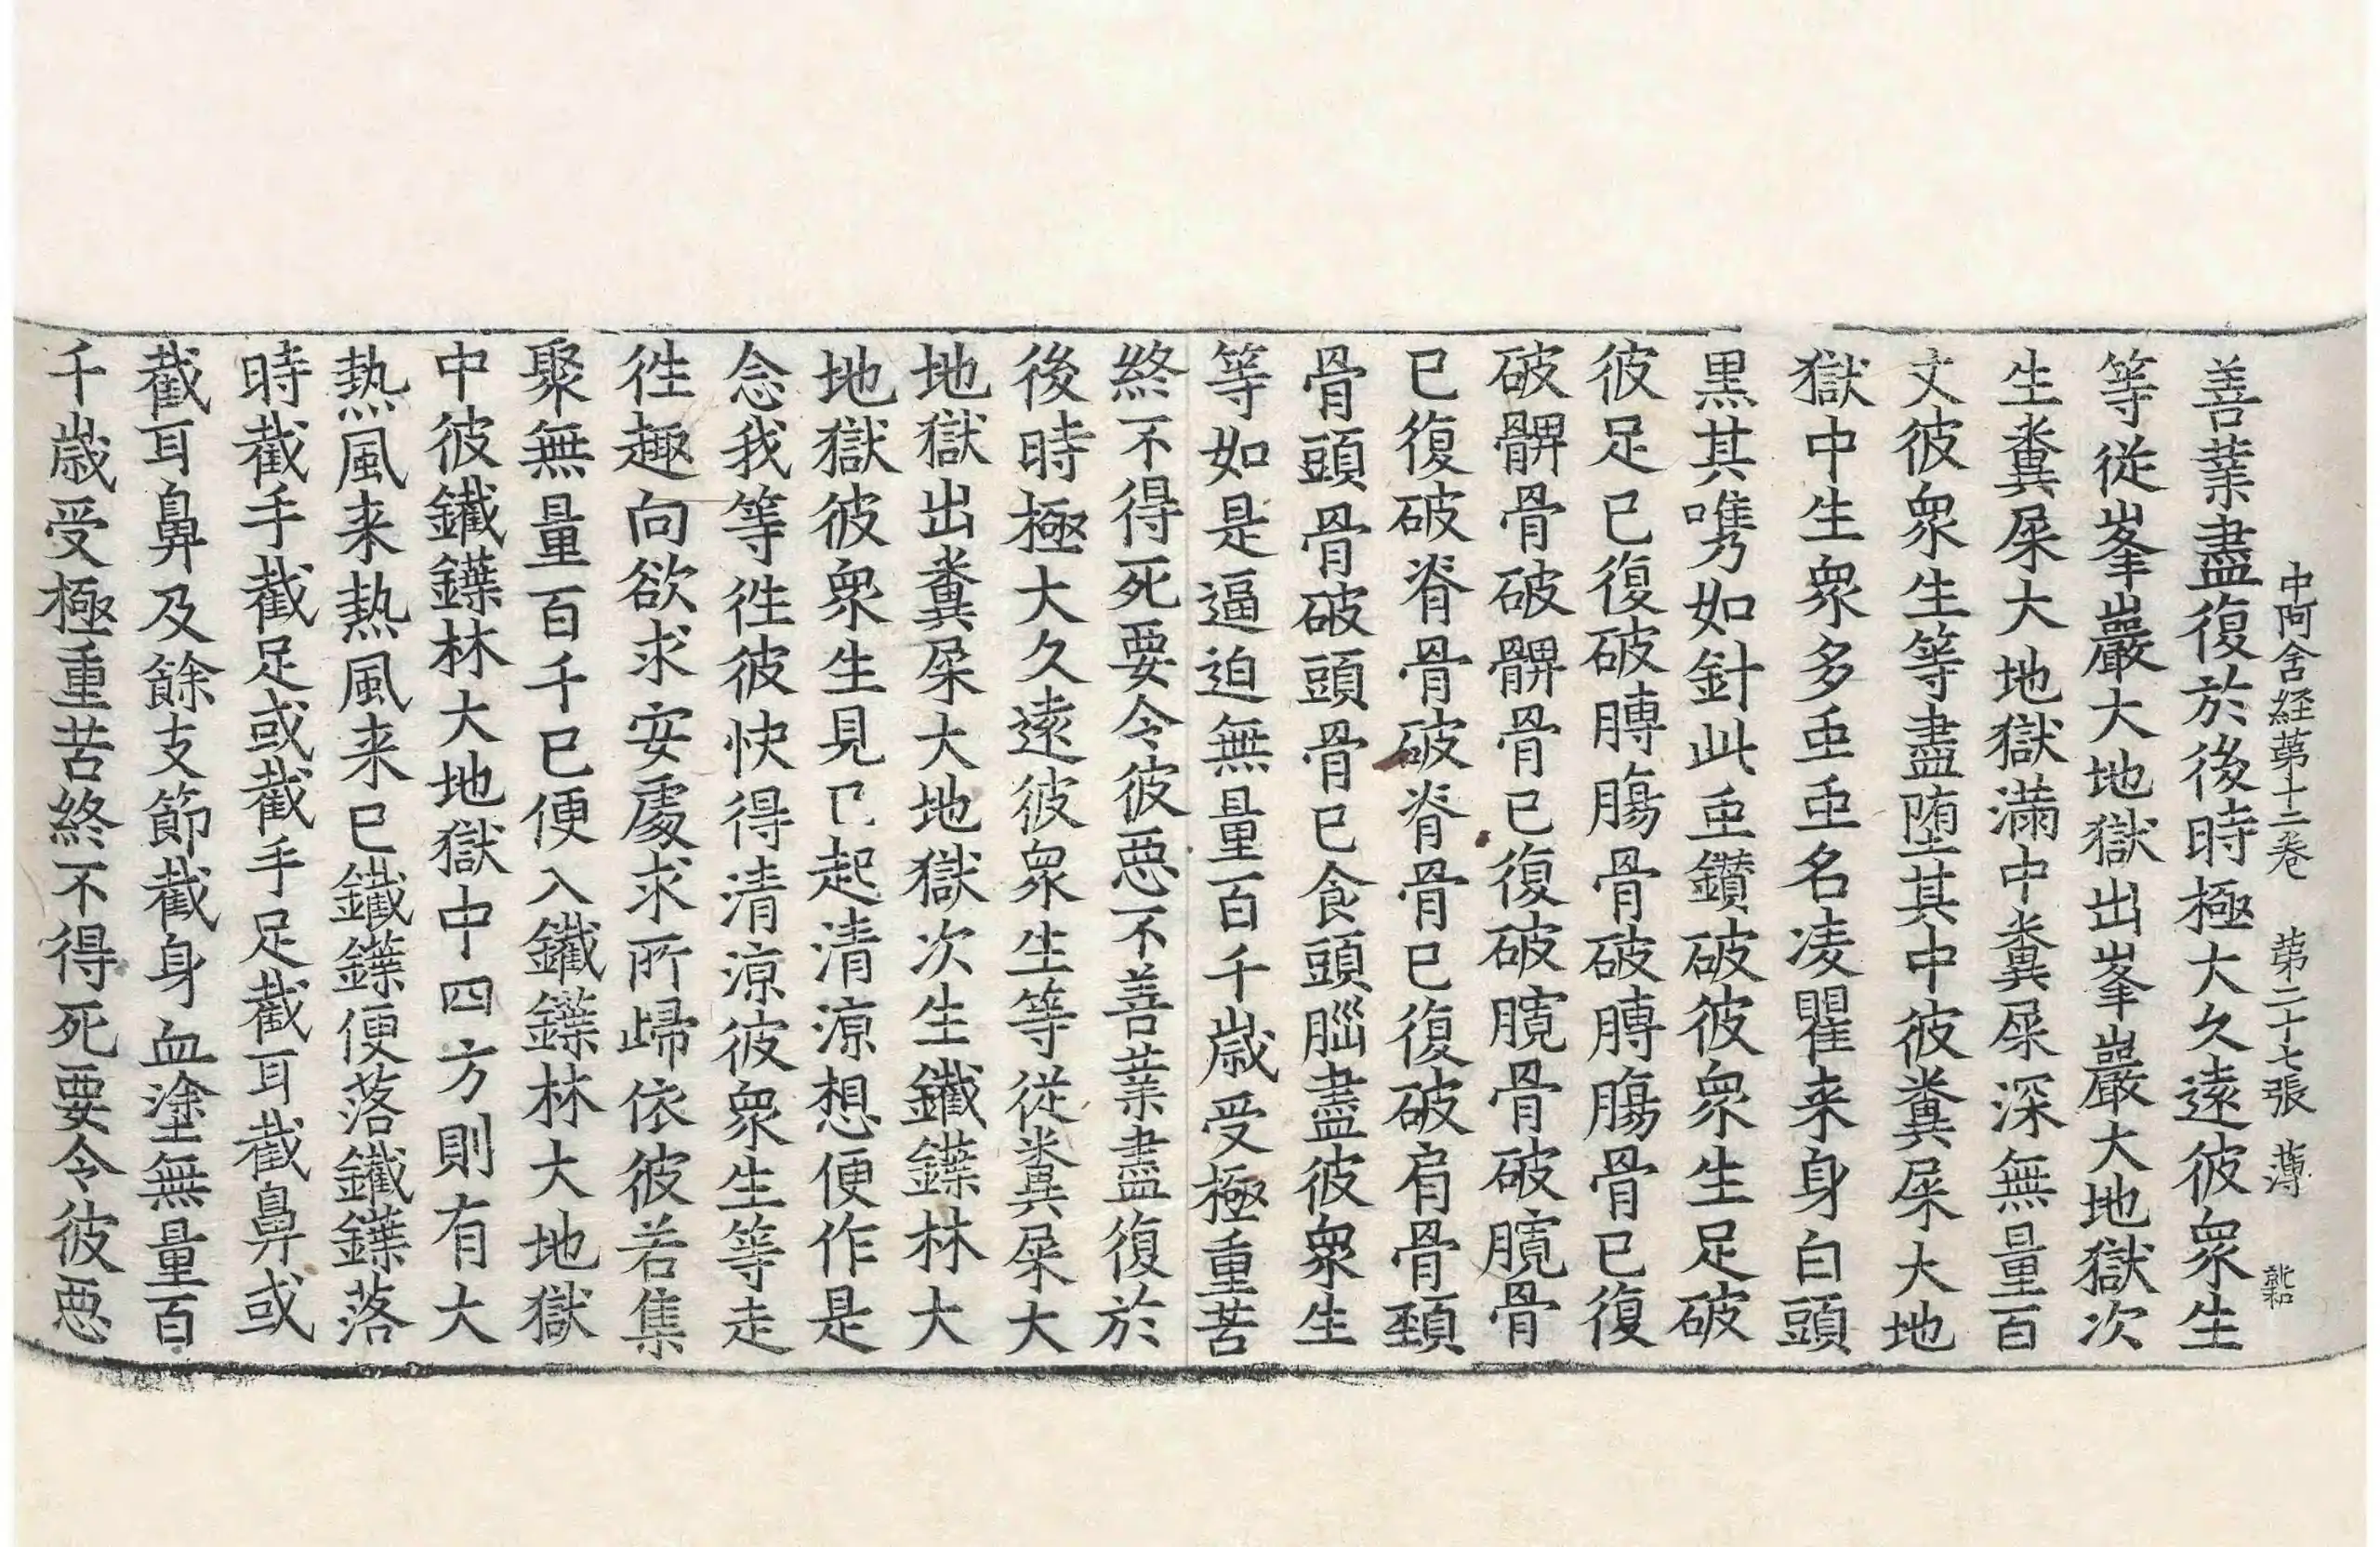 中阿含経苐十二卷 苐二十七張 薄
善業盡復於後時極大久遠彼衆生
等從峯巖大地獄出峯巖大地獄次
生糞屎大地獄滿中糞屎深無量百
丈彼衆生等盡墮其中彼糞屎大地
獄中生衆多䖝䖝名凌瞿来身白頭
黒其㭰如針此䖝鑽破彼衆生足破
彼足已復破膞腸骨破膞腸骨已復
破髀骨破髀骨已復破臗骨破臗骨
已復破脊骨破脊骨已復破肩骨頸
骨頭骨破頭骨已食頭腦盡彼衆生
等如是逼迫無量百千歲受極重苦
終不得死要令彼惡不善業盡復於
後時極大久遠彼衆生等從糞屎大
地獄出糞屎大地獄次生鐵鍱林大
地獄彼衆生見已起清涼想便作是
念我等徃彼快得清涼彼衆生等走
徃趣向欲求安處求所歸依彼若集
聚無量百千已便入鐵鍱林大地獄
中彼鐵鍱林大地獄中四方則有大
熱風来熱風来已鐵鍱便落鐵鍱落
時截手截足或截手足截耳截鼻或
截耳鼻及餘支節截身血塗無量百
千歲受極重苦終不得死要令彼惡